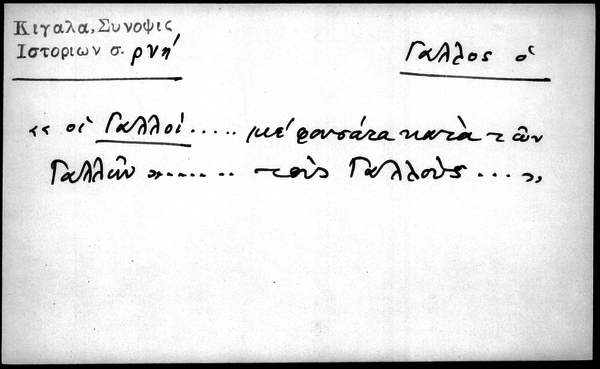 Κιγαλα, Συνοψις
Ιστοριων σ. ρνη'
Γαλλος ὁ
« οἱ Γαλλοὶ ..... μὲ φουσάτα κατὰ τῶν
Γαλλῶν »...... τοὺς Γαλλοὺς ... »